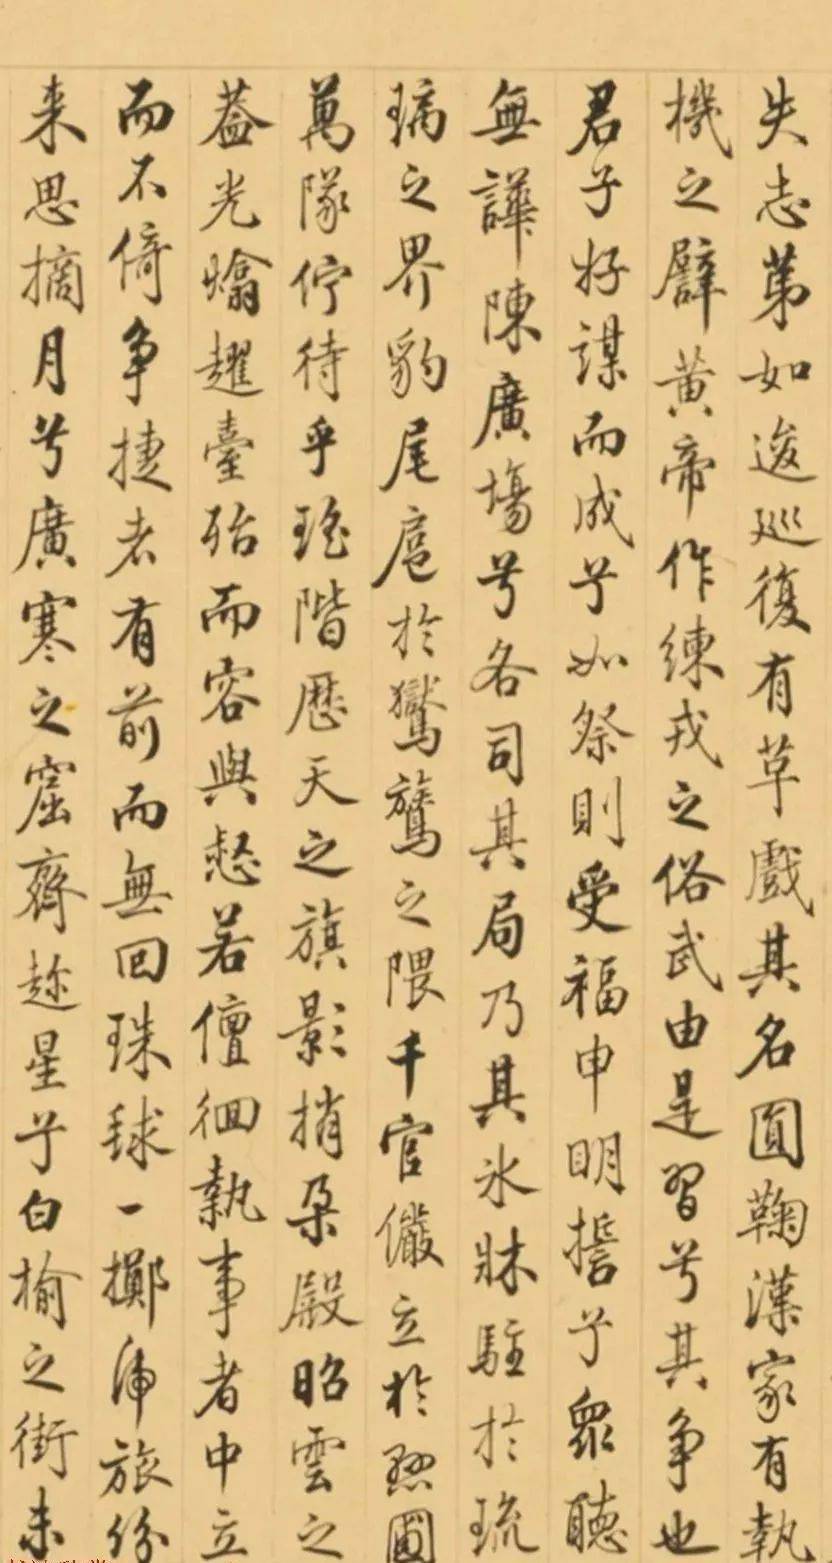 失志苐如逡巡復有草戲其名圓鞠漢家有執
機之黃帝作練戎之俗武由是習兮其争也
君子好謀而成兮如祭則受福申明誓兮眾聽
無譁陳廣場兮各司其局乃其氷牀駐於琉
璃之界豹尾扈於鸑鷟之隈千官儼立於圃
萬隊佇待乎瑤階歷天之旗影捎朵殿昭雲之
葢光爚趯臺殆而容與若儃徊執事者中立
而不倚争捷者有前而無回珠毬一擲虎旅紛
来思摘月兮廣寒之窟齊趂星兮白榆之街未